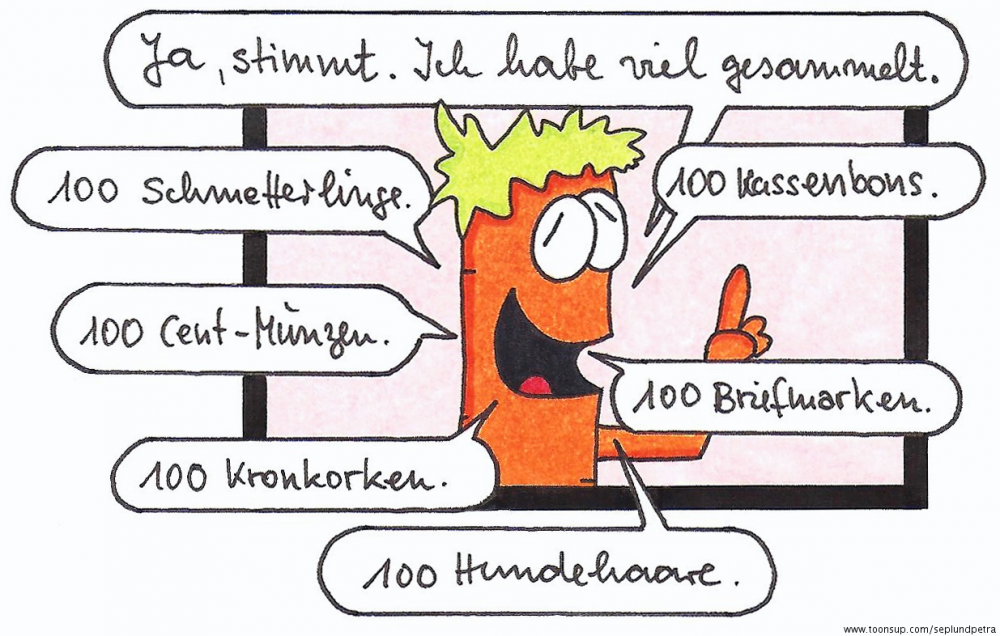 Ja, stimmt. Ich habe viel gesammelt.
100 Schmetterlinge.
100 Kassenbons.
100 Cent-Münzen.
100 Briefmarken.
100 Kronkorken.
100 Hundehaare.
www.toonsup.com/seplundpetra